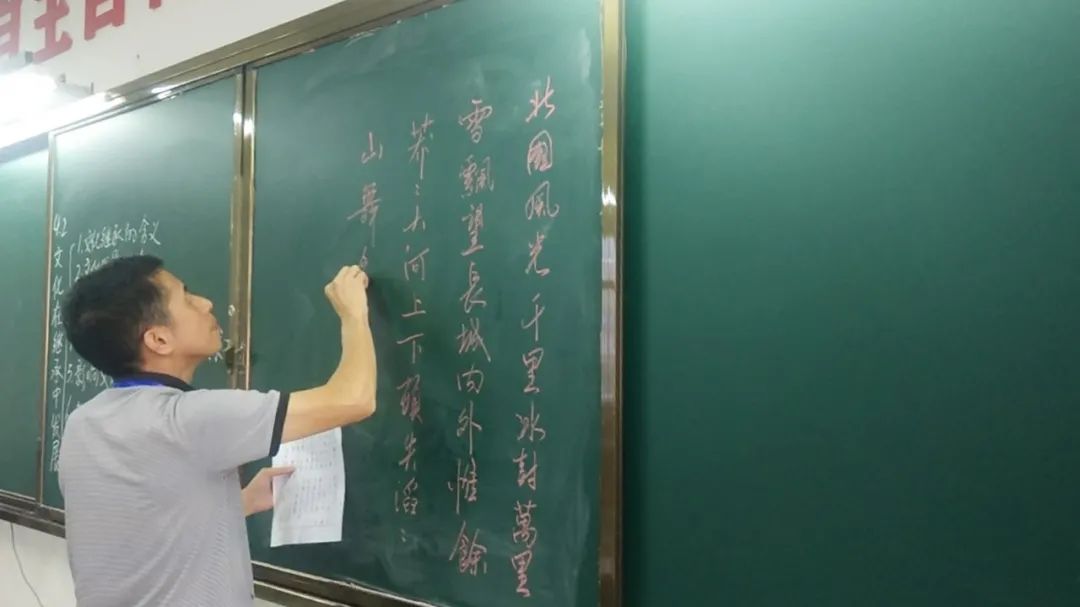 北國風光千里冰封萬里
雪飄望長城內外惟餘
莽〻大河上下頓失滔〻
山舞
4.2 文化在继承中发展
1.文化继承的含义
2.文化
5.影响